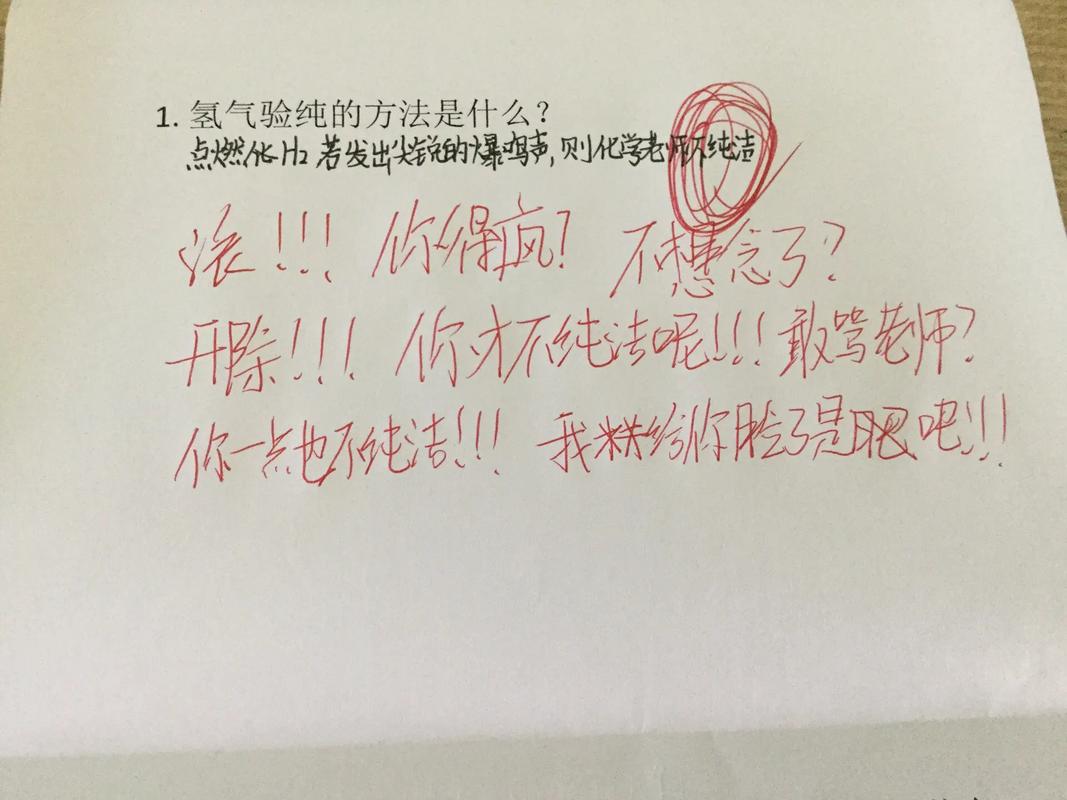 1. 氢气验纯的方法是什么?
点燃化H2 若发出尖锐的爆鸣声,则化学老师不纯洁
滚!!! 你得疯? 不想念了?
开除!!! 你才不纯洁呢!!! 敢骂老师?
你一点也不纯洁!!! 我粠给你脸了是吧!!!